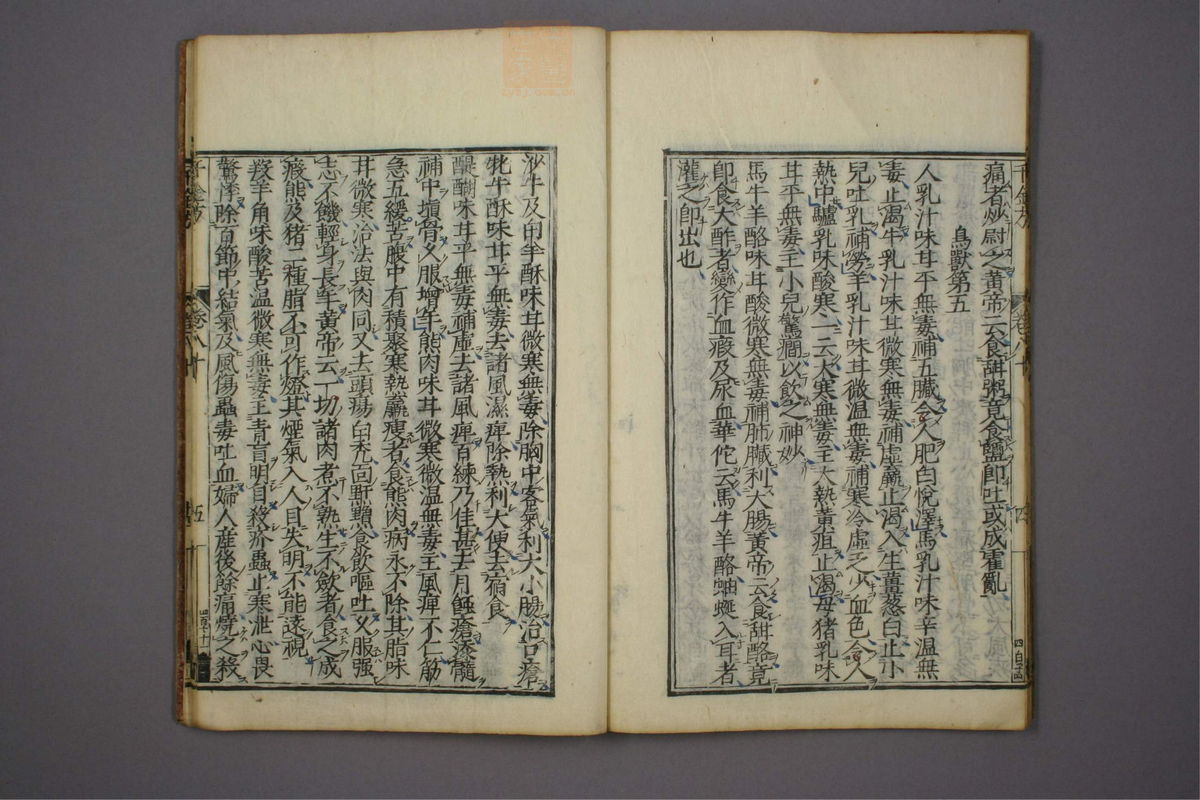 痛者炒尉之黄帝云食甜粥竟食鹽即吐或成霍亂
鳥獸第五
人乳汁味甘平無毒補五臟令人肥白悅澤馬乳汁味辛温無
毒止渴牛乳汁味甘微寒無毒補虛羸止渴入生薑葱白止小
兒吐乳補勞羊乳汁味甘微温無毒補寒冷虛乏少血色令人
熱中驢乳味酸寒一云大寒無毒主大熱黄疸止渴母猪乳味
甘平無毒主小兒驚癎以飲之神妙
馬牛羊酪味甘酸微寒無毒補肺臟利大腸黄帝云食甜酪竟
即食大酢者變作血瘕及尿血華佗云馬牛羊酪蚰蜒入耳者
灌之即出也
沙牛及白羊酥味甘微寒無毒除胸中客氣利大小腸治口瘡
牝牛酥味甘平無毒去諸風濕痺除熱利大便去宿食
醍醐味甘平無毒補虛去諸風痺百練乃佳甚去月蝕瘡添髓
補中填骨久服增年熊肉味甘微寒微温無毒主風痺不仁筋
急五緩若腹中有積聚寒熱羸瘦者食熊肉病永不除其脂味
甘微寒治法與肉同又去頭瘍白禿面䵟䵳食飲嘔吐久服强
志不饑輕身長年黄帝云一切諸肉煮不熟生不斂者食之成
瘕熊及猪二種脂不可作燈其煙氣入人目失明不能遠視
羖羊角味酸苦温微寒無毒主青盲明目殺疥蟲止寒泄心畏
驚悸除百節中結氣及風傷蠱毒吐血婦人産後餘痛燒之殺
卷八十
五